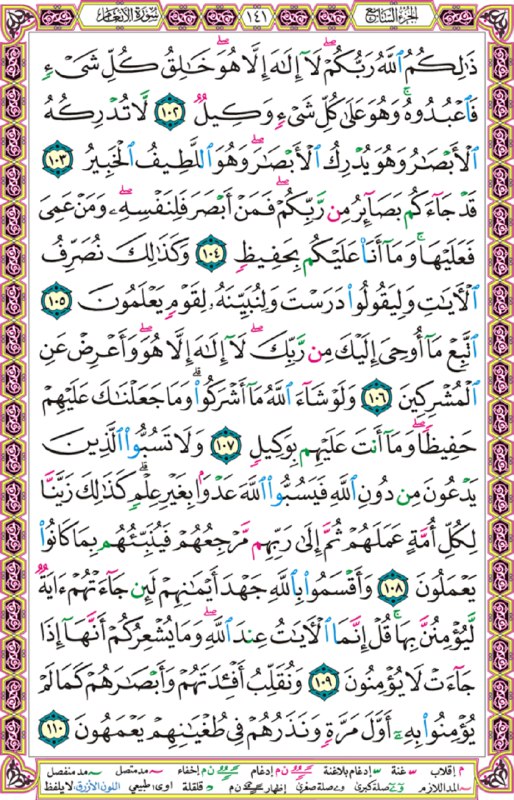 الجزء السابع ١٤١ سورة الأنعام
ذَٰلِكُمُ ٱللَّهُ رَبُّكُمْ ۖ لَآ إِلَٰهَ إِلَّا هُوَ ۖ خَٰلِقُ كُلِّ شَىْءٍ
فَٱعْبُدُوهُ ۚ وَهُوَ عَلَىٰ كُلِّ شَىْءٍ وَكِيلٌ ١٠٢ لَّا تُدْرِكُهُ
ٱلْأَبْصَٰرُ وَهُوَ يُدْرِكُ ٱلْأَبْصَٰرَ ۖ وَهُوَ ٱللَّطِيفُ ٱلْخَبِيرُ ١٠٣
قَدْ جَآءَكُم بَصَآئِرُ مِن رَّبِّكُمْ ۖ فَمَنْ أَبْصَرَ فَلِنَفْسِهِۦ ۖ وَمَنْ عَمِىَ
فَعَلَيْهَا ۚ وَمَآ أَنَا۠ عَلَيْكُم بِحَفِيظٍ ١٠٤ وَكَذَٰلِكَ نُصَرِّفُ
ٱلْءَايَٰتِ وَلِيَقُولُوا۟ دَرَسْتَ وَلِنُبَيِّنَهُۥ لِقَوْمٍ يَعْلَمُونَ ١٠٥
ٱتَّبِعْ مَآ أُوحِىَ إِلَيْكَ مِن رَّبِّكَ ۖ لَآ إِلَٰهَ إِلَّا هُوَ ۖ وَأَعْرِضْ عَنِ
ٱلْمُشْرِكِينَ ١٠٦ وَلَوْ شَآءَ ٱللَّهُ مَآ أَشْرَكُوا۟ ۗ وَمَا جَعَلْنَٰكَ عَلَيْهِمْ
حَفِيظًا ۖ وَمَآ أَنتَ عَلَيْهِم بِوَكِيلٍ ١٠٧ وَلَا تَسُبُّوا۟ ٱلَّذِينَ
يَدْعُونَ مِن دُونِ ٱللَّهِ فَيَسُبُّوا۟ ٱللَّهَ عَدْوًۢا بِغَيْرِ عِلْمٍ ۗ كَذَٰلِكَ زَيَّنَّا
لِكُلِّ أُمَّةٍ عَمَلَهُمْ ثُمَّ إِلَىٰ رَبِّهِم مَّرْجِعُهُمْ فَيُنَبِّئُهُم بِمَا كَانُوا۟
يَعْمَلُونَ ١٠٨ وَأَقْسَمُوا۟ بِٱللَّهِ جَهْدَ أَيْمَٰنِهِمْ لَئِن جَآءَتْهُمْ ءَايَةٌ
لَّيُؤْمِنُنَّ بِهَا ۚ قُلْ إِنَّمَا ٱلْءَايَٰتُ عِندَ ٱللَّهِ ۖ وَمَا يُشْعِرُكُمْ أَنَّهَآ إِذَا
جَآءَتْ لَا يُؤْمِنُونَ ١٠٩ وَنُقَلِّبُ أَفْـِٔدَتَهُمْ وَأَبْصَٰرَهُمْ كَمَا لَمْ
يُؤْمِنُوا۟ بِهِۦٓ أَوَّلَ مَرَّةٍ وَنَذَرُهُمْ فِى طُغْيَٰنِهِمْ يَعْمَهُونَ ١١٠
م إقلاب غنة إدغام بلاغنة ن م إدغام ن م إخفاء مد متصل مد منفصل
المد اللازم صلة كبرى صلة صغرى إظهار ن م قلقلة اوى: طبيعي اللون الأزرق: لا يلفظ